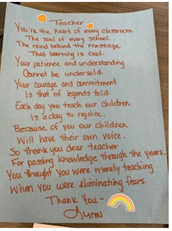 Teacher
You're the heart of every classroom.
The soul of every school.
The mind behind the message.
That learning is cool.
Your patience and understanding
Cannot be undersold.
Your courage and commitment
Is that of legends told.
Each day you teach our children
Is a day to rejoice.
Because of you our children
Will have their own voice.
So thank you dear teacher
For passing knowledge through the years.
You thought you were merely teaching
When you were eliminating fears.
Thank You -
Lynn